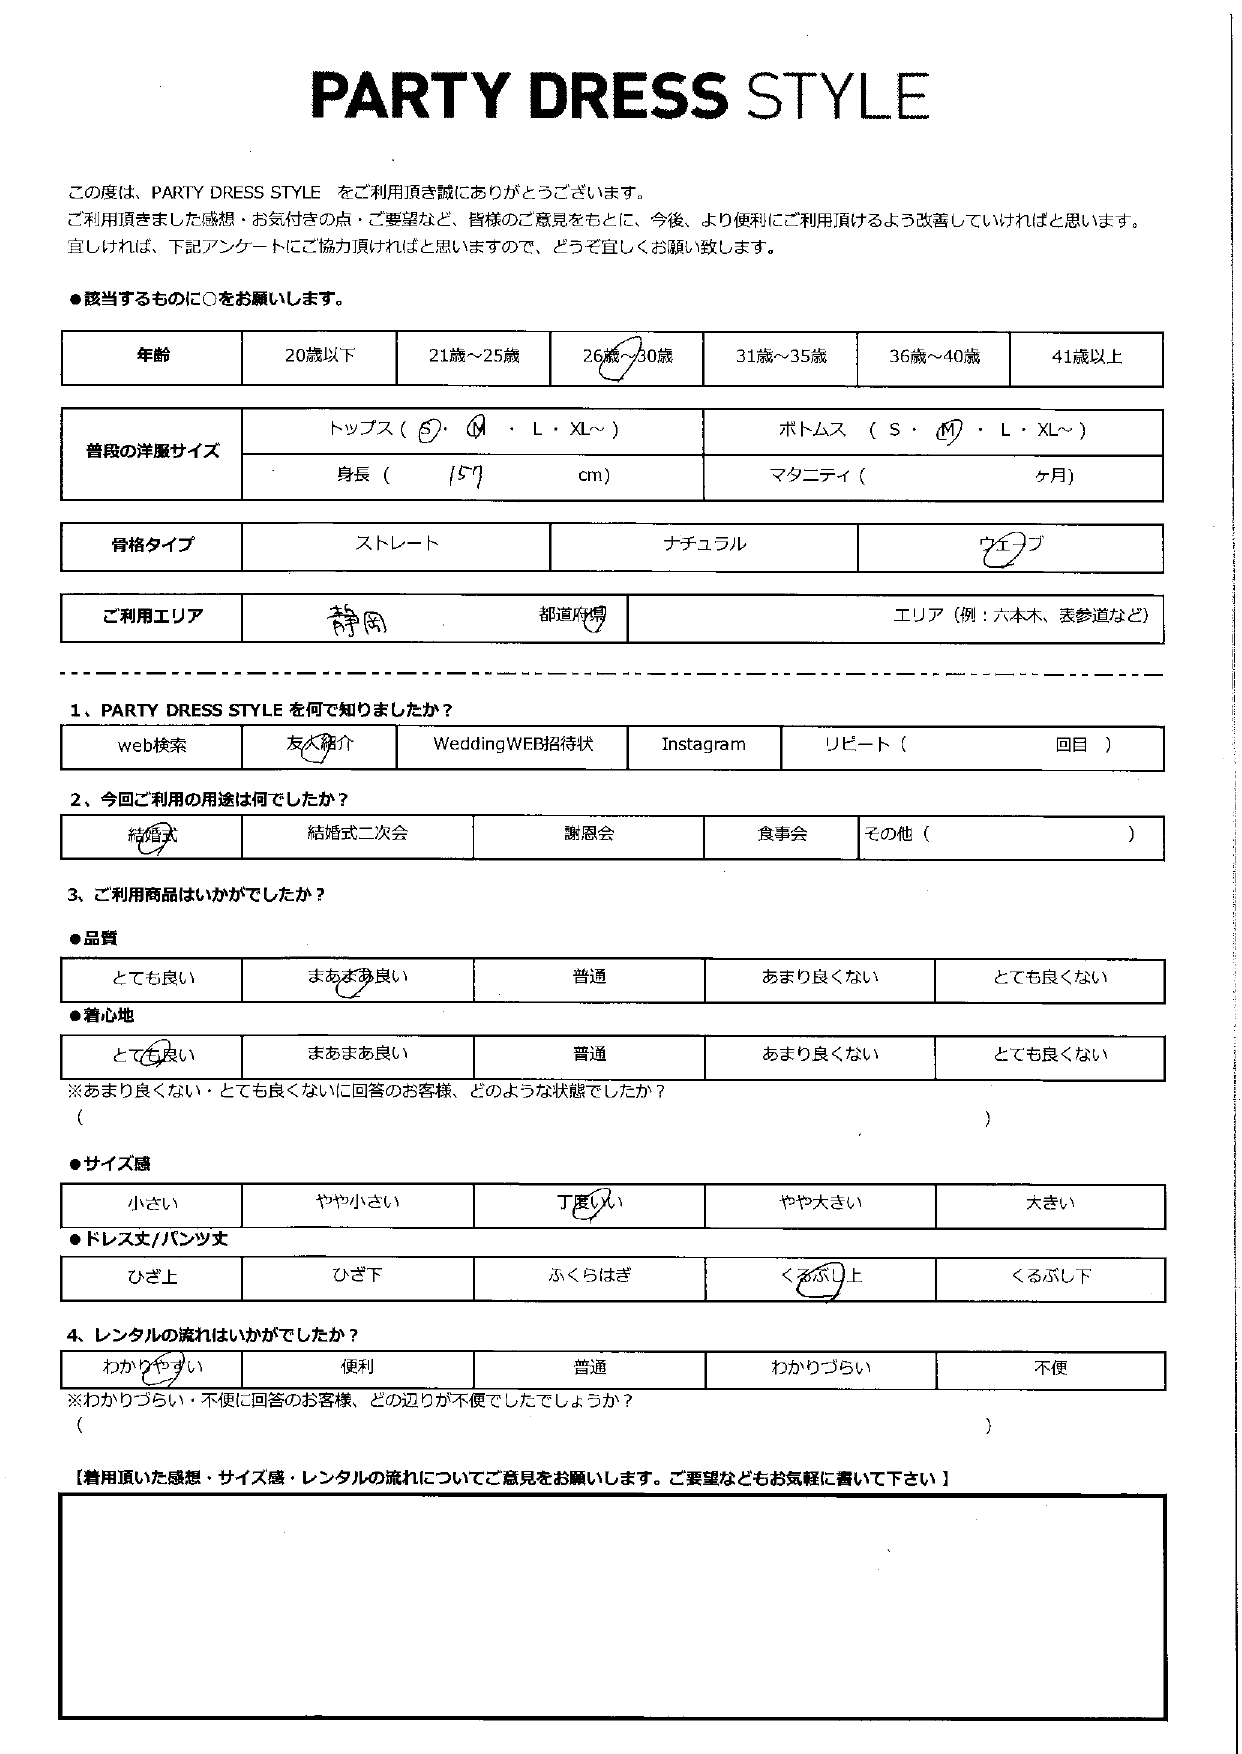 PARTY DRESS STYLE
この度は、PARTY DRESS STYLE をご利用頂き誠にありがとうございます。
ご利用頂きました感想・お気付きの点・ご要望など、皆様のご意見をもとに、今後、より便利にご利用頂けるよう改善していければと思います。
宜しければ、下記アンケートにご協力頂ければと思いますので、どうぞ宜しくお願い致します。
●該当するものに○をお願いします。
年齢 20歳以下 21歳～25歳 26歳～30歳 31歳～35歳 36歳～40歳 41歳以上
普段の洋服サイズ トップス ( S ・ M ・ L ・ XL～ ) ボトムス ( S ・ M ・ L ・ XL～ )
身長 ( 157 cm) マタニティ ( ヶ月)
骨格タイプ ストレート ナチュラル ウェーブ
ご利用エリア 静岡 都道府県 エリア（例：六本木、表参道など）
1、PARTY DRESS STYLE を何で知りましたか？
web検索 友人紹介 WeddingWEB招待状 Instagram リピート ( 回目 )
2、今回ご利用の用途は何でしたか？
結婚式 結婚式二次会 謝恩会 食事会 その他 ( )
3、ご利用商品はいかがでしたか？
●品質
とても良い まあまあ良い 普通 あまり良くない とても良くない
●着心地
とても良い まあまあ良い 普通 あまり良くない とても良くない
※あまり良くない・とても良くないに回答のお客様、どのような状態でしたか？
( )
●サイズ感
小さい やや小さい 丁度いい やや大きい 大きい
●ドレス丈/パンツ丈
ひざ上 ひざ下 ふくらはぎ くるぶし上 くるぶし下
4、レンタルの流れはいかがでしたか？
わかりやすい 便利 普通 わかりづらい 不便
※わかりづらい・不便に回答のお客様、どの辺りが不便でしたでしょうか？
( )
【着用頂いた感想・サイズ感・レンタルの流れについてご意見をお願いします。ご要望などもお気軽に書いて下さい 】